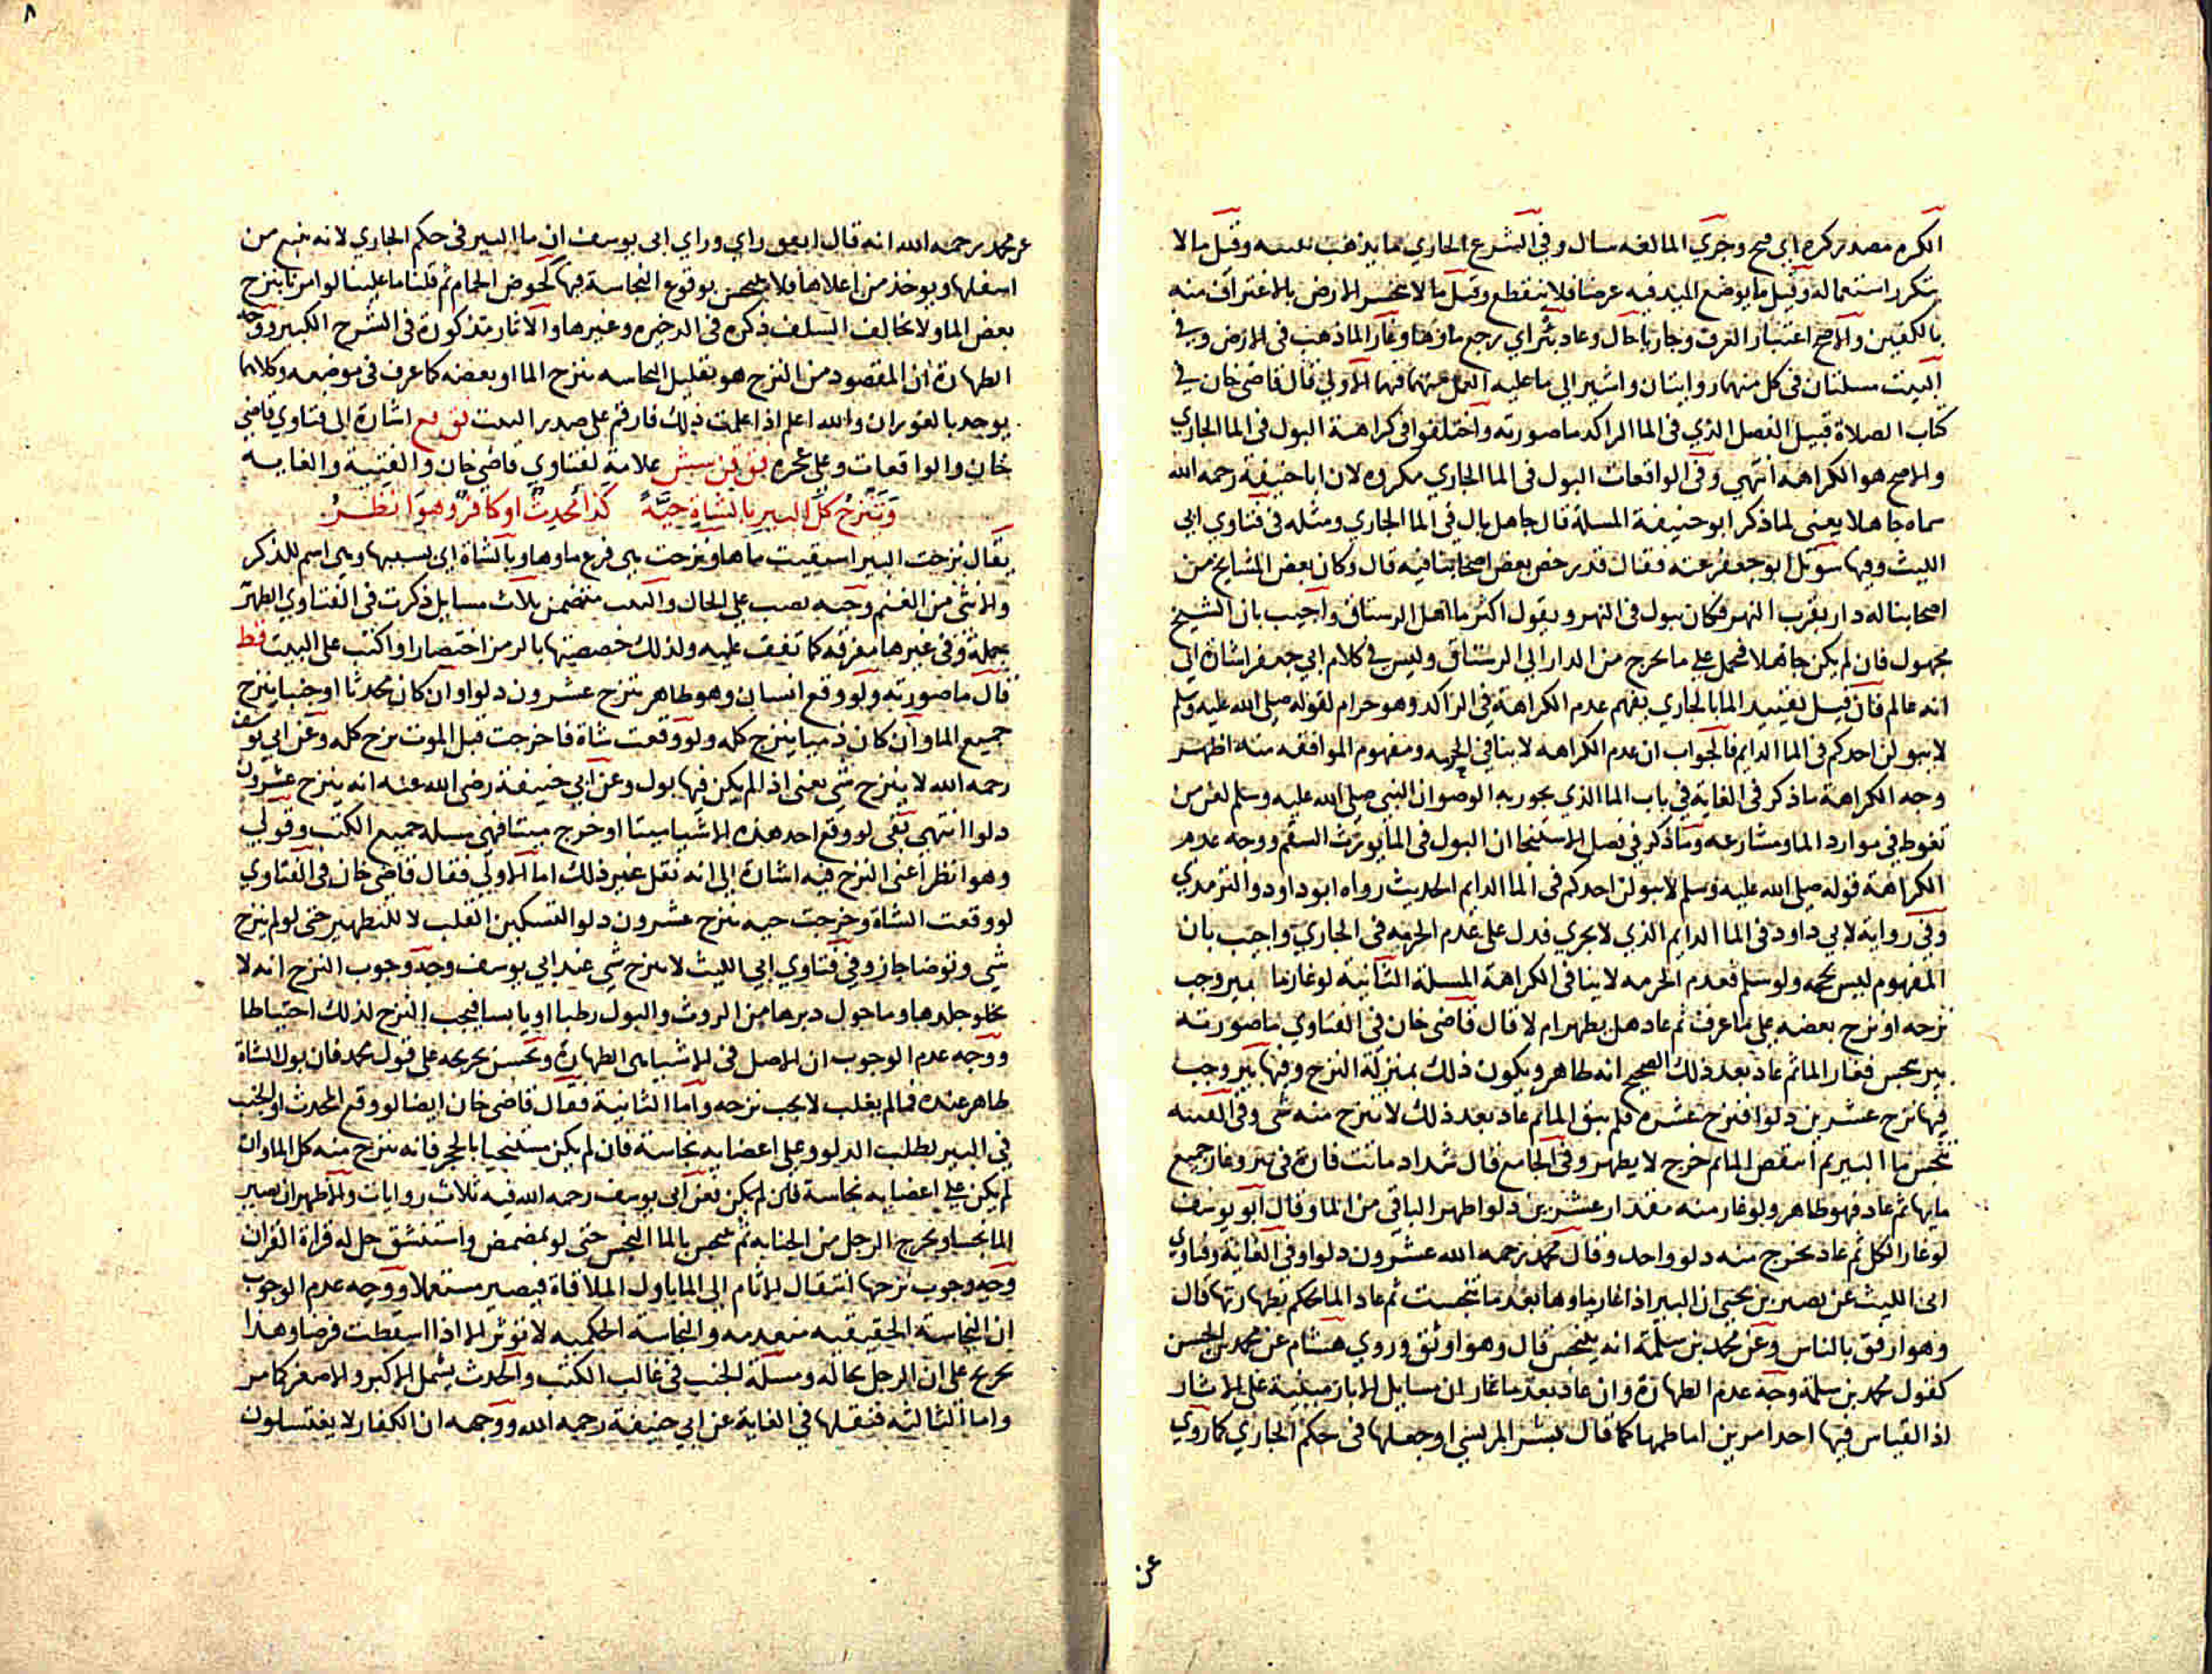 الكره مصدر كره اي قبح وجري الما لغه سال وفي الشرع الجاري ما يذهب بتبنه وقيل ما لا
يتكرر استعماله وقيل ما يوضع اليد فيه عرضا فلا ينقطع وقيل ما لا ينحسر الارض بالاغتراف منه
بالكفين والاصح اعتبار العرف وجاريا حال وعاد بئر اي رجع ماوها وغار الما ذهب في الارض وفي
البيت مسلتان في كل منهما روايتان واشير الي ما عليه العمل منهما فيها الاولي قال قاضي خان في
كتاب الصلاة قبيل الفصل الذي في الما الراكد ما صورته واختلفوا في كراهة البول في الما الجاري
والاصح هو الكراهه انتهي وفي الواقعات البول في الما الجاري مكروه لان ابا حنيفة رحمه الله
سماه جاهلا يعني لما ذكر ابو حنيفة المسلة قال جاهل بال في الما الجاري ومثله في فتاوي ابي
الليث وفيها سوئل ابو جعفر عنه فقال قد رخص بعض اصحابنا فيه قال وكان بعض المشايخ من
اصحابنا له دار بقرب النهر فكان يبول في النهر ويقول اكثر ما اهل الرستاق واجيب بان الشيخ
مجهول فان لم يكن جاهلا فمحمل علي ما يخرج من الدار الي الرستاق وليس في كلام ابي جعفر اشارة الي
انه عالم فان قيل تقييد الما بالجاري يفهم عدم الكراهة في الراكد وهو حرام لقوله صلي الله عليه وسلم
لا يبولن احدكم في الما الدايم فالجواب ان عدم الكراهه لا ينافي الحرمه ومفهوم الموافقه منه اظهر
وجه الكراهة ما ذكر في الغاية في باب الما الذي يجوز به الوضو ان النبي صلي الله عليه وسلم لعن من
تغوط في موارد الما ومشارعه وما ذكر في فصل الاستنجا ان البول في الما يورث السقم ووجه عدم
الكراهة قوله صلي الله عليه وسلم لا يبولن احدكم في الما الدايم الحديث رواه ابو داود والترمذي
وفي رواية لابي داود في الما الدايم الذي لا يجري فدل علي عدم الحرمه في الجاري واجيب بان
المفهوم ليس بحجه ولو سلم فعدم الحرمه لا ينافي الكراهة المسلة الثانية لو غار ما بير وجب
نزحه او نزح بعضه علي ما عرف ثم عاد هل يطهر ام لا قال قاضي خان في الفتاوي ما صورته
بير تنجس فغار الما ثم عاد بعد ذلك الصحيح انه طاهر ويكون ذلك بمنزلة النزح وفيها بير وجب
فيها نزح عشرين دلوا فنزح عشرة فلم يبق الما ثم عاد بعد ذلك لا ينزح منه شي وفي القنيه
تنجس ما البير ثم انتقص الما ثم خرج لا يطهر وفي الجامع قال شداد ماتت فارة في بير وغار جميع
مايها ثم عاد فهو طاهر ولو غار منه مقدار عشرين دلوا طهر الباقي من الما وقال ابو يوسف
لو غار الكل ثم عاد يخرج منه دلو واحد وقال محمد رحمه الله عشرون دلوا وفي الغاية وفتاوي
ابي الليث عن نصير بن يحيي ان البير اذا غار ماوها بعد ما تنجست ثم عاد الما يحكم بطهارتها قال
وهو ارفق بالناس وعن محمد بن سلمة انه ينجس قال وهو اوثق وروي هشام عن محمد بن الحسن
كقول محمد بن سلمة وجه عدم الطهارة وان عاد بعد ما غار ان مسايل الابار مبنية علي الاثار
اذ القياس فيها احد امرين اما طمها كما قال بشر المريسي او جعلها في حكم الجاري كما روي
عن
عن محمد رحمه الله انه قال اتفق راي وراي ابي يوسف ان ما البير في حكم الجاري لانه ينبع من
اسفلها ويوخذ من اعلاها فلا ينجس بوقوع النجاسة فيها كحوض الحمام ثم قلنا ما علينا لو امرنا بنزح
بعض الما ولا نخالف السلف ذكره في الذخيره وغيرها والاثار مذكورة في الشرح الكبير ووجه
الطهارة ان المقصود من النزح هو تقليل النجاسه بنزح الما او بعضه كما عرف في موضعه وكلاهما
يوجد بالغوران والله اعلم اذا علمت ذلك فارقم علي صدر البيت اشارة الي فتاوي قاضي
خان والواقعات وعلي عجزه علامة لفتاوي قاضي خان والقنية والغايه
وَتُنْزَحُ كلُّ البير بالشاةِ حيَّةً كذا مُحْدِثٌ او كافرٌ وهوَ انظرُ
يقال نزحت البير استقيت ماها ونزحت هي فرغ ماوها وبالشاة اي بسببها وهي اسم للذكر
والانثي من الغنم وحيه نصب علي الحال والبيت متضمن ثلاث مسايل ذكرت في الفتاوي الظهيرية
جملة وفي غيرها مفرقه كما تقف عليه ولذلك خصصتها بالرمز اختصارا واكتب علي البيت فظ
قال ما صورته ولو وقع انسان وهو طاهر ينزح عشرون دلوا وان كان محدثا او جنبا ينزح
جميع الما وان كان ذميا ينزح كله ولو وقعت شاة فاخرجت قبل الموت نزح كله وعن ابي يوسف
رحمه الله لا ينزح شي يعني اذا لم يكن فيها بول وعن ابي حنيفة رضي الله عنه انه ينزح عشرون
دلوا انتهي بقي لو وقع احد هذه الاشيا ميتا او خرج ميتا فهي مسلة جميع الكتب وقولي
وهو انظر اعني النزح فيه اشارة الي انه نقل غير ذلك اما الاولي فقال قاضي خان في الفتاوي
لو وقعت الشاة وخرجت حيه ينزح عشرون دلوا لتسكين القلب لا للتطهير حتي لو لم ينزح
شي وتوضا جاز وفي فتاوي ابي الليث لا ينزح شي عند ابي يوسف وجه وجوب النزح انه لا
يخلو جلدها وما حول دبرها من الروث والبول رطبا او يابسا فيجب النزح لذلك احتياطا
ووجه عدم الوجوب ان الاصل في الاشيا هي الطهارة ويحسن تخريجه علي قول محمد فان بول الشاة
طاهر عنده فما لم يغلب لا يجب نزحه واما الثانية فقال قاضي خان ايضا لو وقع المحدث او الجنب
في البير لطلب الدلو وعلي اعضايه نجاسة فان لم يكن مستنجيا بالحجر فانه ينزح منه كل الما وان
لم يكن علي اعضايه نجاسة فان لم يكن فعن ابي يوسف رحمه الله فيه ثلاث روايات والاظهر ان يصير
الما نجسا ويخرج الرجل من الجنابه ثم ينجس بالما النجس حتي لو تمضمض واستنشق حل له قراة القران
وجه وجوب نزحها انتقال الاثام الي الما باول الملاقاة فيصير مستعملا ووجه عدم الوجوب
ان النجاسة الحقيقيه منعدمه والنجاسة الحكميه لا توثر الا اذا اسقطت فرضا وهذا
يخرج علي ان الرجل بحاله ومسلة الجنب في غالب الكتب والحدث يشمل الاكبر والاصغر كما مر
واما الثالثه فنقلها في الغاية عن ابي حنيفة رحمه الله ووجهه ان الكفار لا يغتسلون